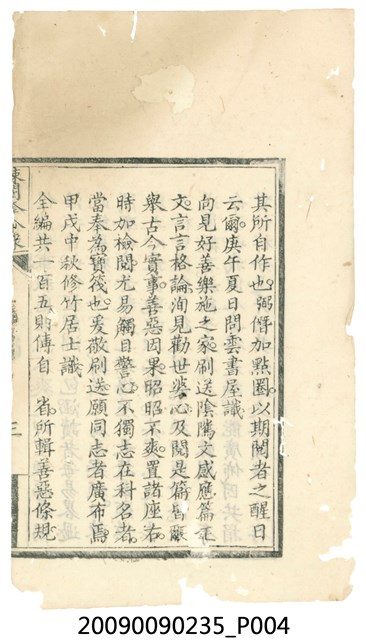 其所自作也弼僭加點圈以期閱者之醒日
云爾庚午夏日問雲書屋識
向見好善樂施之家刷送陰隲文感應篇等
文言言格論洵見勸世婆心及閱是篇皆
舉古今實事善惡因果昭昭不爽置諸座右
時加檢閱尤易觸目警心不獨志在科名者
當奉為寶筏也爰敬刷送願同志者廣布焉
甲戌中秋修竹居士識
全編共一百五則傳自　省所輯善惡條規
三
20090090235_P004